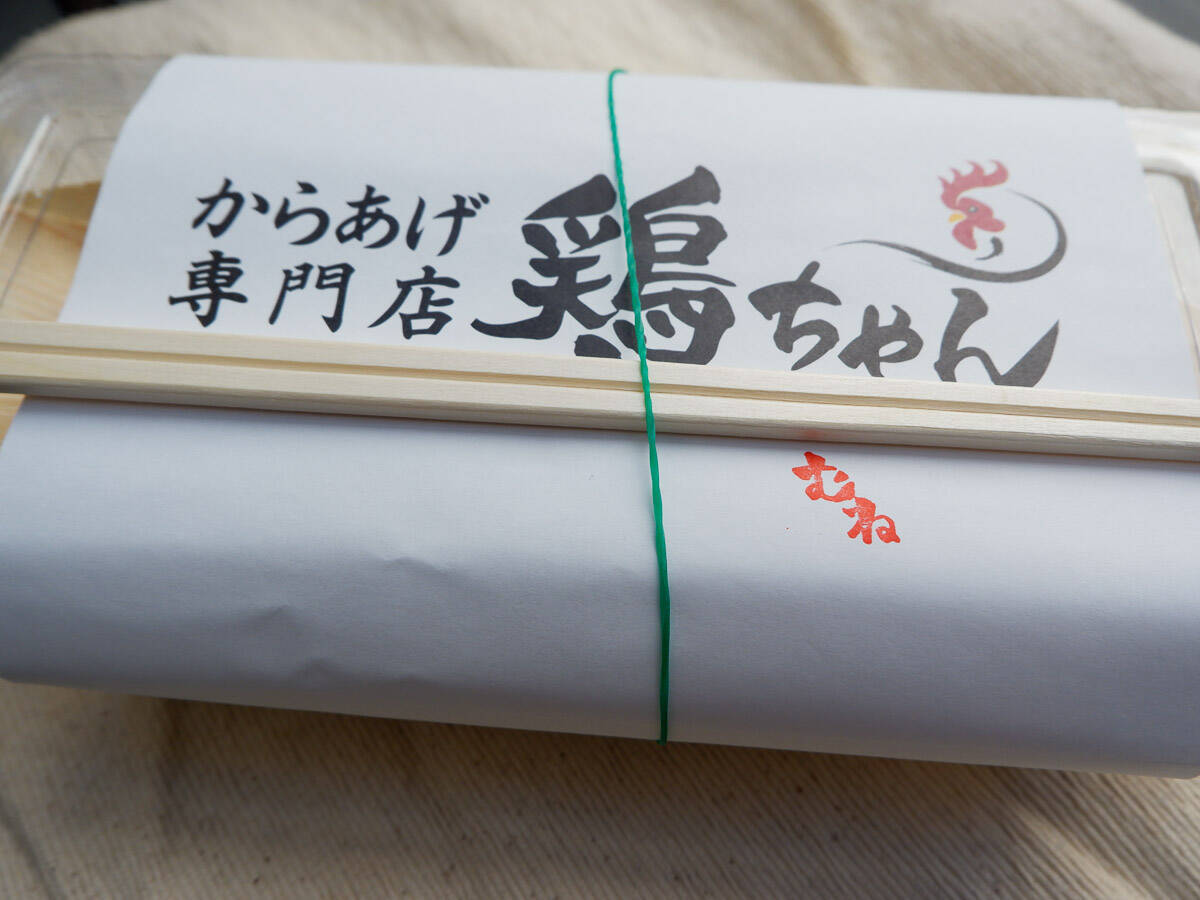 からあげ
専門店
鶏ちゃん
むね